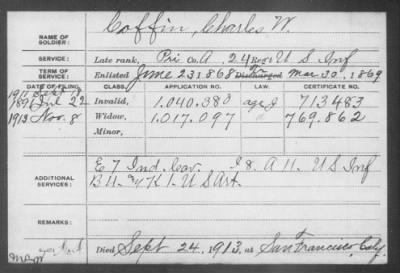 NAME OF SOLDIER: Coffin, Charles W.
SERVICE: Late rank, Pri Co. A, 24 Reg't U S Inf
TERM OF SERVICE: Enlisted June 23 1868 Discharged Mar 30, 1869
DATE OF FILING. CLASS. APPLICATION NO. CERTIFICATE NO.
1891 Jul 22 Invalid, 1.040.380 713483
1913 Nov. 8 Widow, 1.017.097 769.862
Minor,
ADDITIONAL SERVICES: E 7 Ind. Cav. 8. A 11. U S Inf
B 11. K 1. U S Art.
REMARKS:
Died Sept 24, 1913, at San Francisco, Calif.